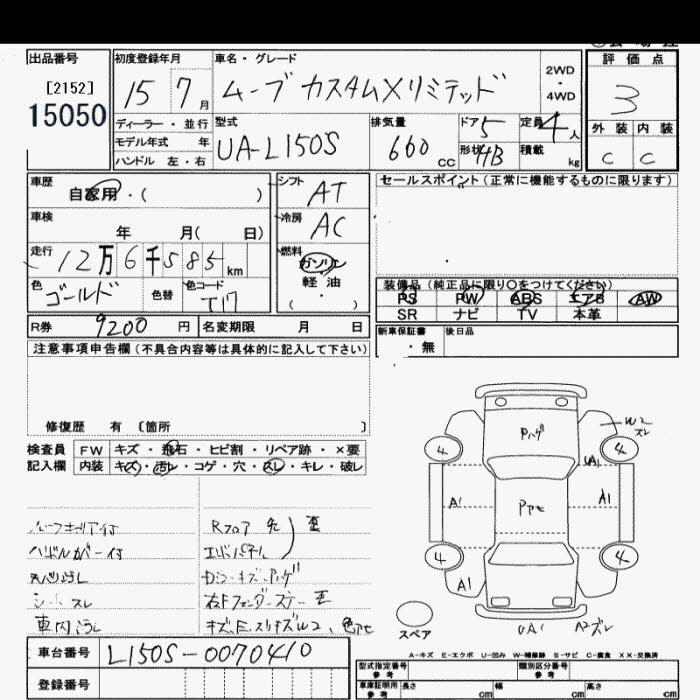 出品番号
[2152]
15050
初度登録年月
15 7 月
車名・グレード
ムーブ カスタムXリミテッド
2WD
・
4WD
評価点
3
外装 内装
C C
ディーラー・並行
モデル年式 年
ハンドル 左・右
型式
UA-L150S
排気量
660 cc
ドア 5
形状 HB
定員 4 人
積載 kg
車歴
自家用・( )
車検
年 月( 日)
走行
12万6千585 km
色
ゴールド
色替
色コード
T17
シフト
AT
冷房
AC
燃料
ガソリン
軽油
( ・ )
セールスポイント(正常に機能するものに限ります)
装備品(純正品に限り○をつけてください)
PS PW ABS エアB AW
SR ナビ TV 本革
R券 9200 円 名変期限 月 日
新車保証書
・無
後日品
注意事項申告欄(不具合内容等は具体的に記入して下さい)
修復歴 有 〔箇所 〕
検査員
記入欄
FW キズ・飛石・ヒビ割・リペア跡・×要
内装 キズ・汚レ・コゲ・穴・スレ・キレ・破レ
ハンドルカバー付
シートスレ
Rフロア 先
歪
エンドパネル
Pハゲ
Pアセ
W2
スレ
4 4
UA1
A1 A1
4 4
A1
UA1 A2スレ
スペア
A-キズ E-エクボ U-凹み W-補修跡 S-サビ C-腐食 XX-交換済
車台番号 L150S-0070410
登録番号
型式指定番号
参考
類別区分番号
参考
車庫証明用
参考
長さ cm 幅 cm 高さ cm